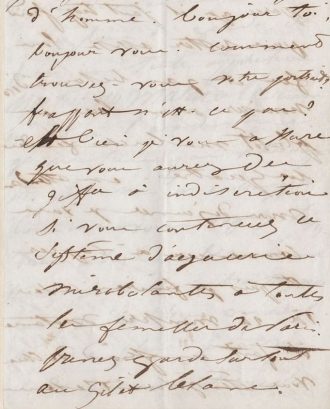 d'homme. bonjour to.
bonjour vous. comment
trouvez-vous votre portrait
frappant n'est ce pas?
et bien je vous assure
que vous aurez des
à indiscrétion
si vous continuez ce
système d'agacerie
mirobolantes à toutes
les femelles de
prenez garde surtout
au gilet blanc.